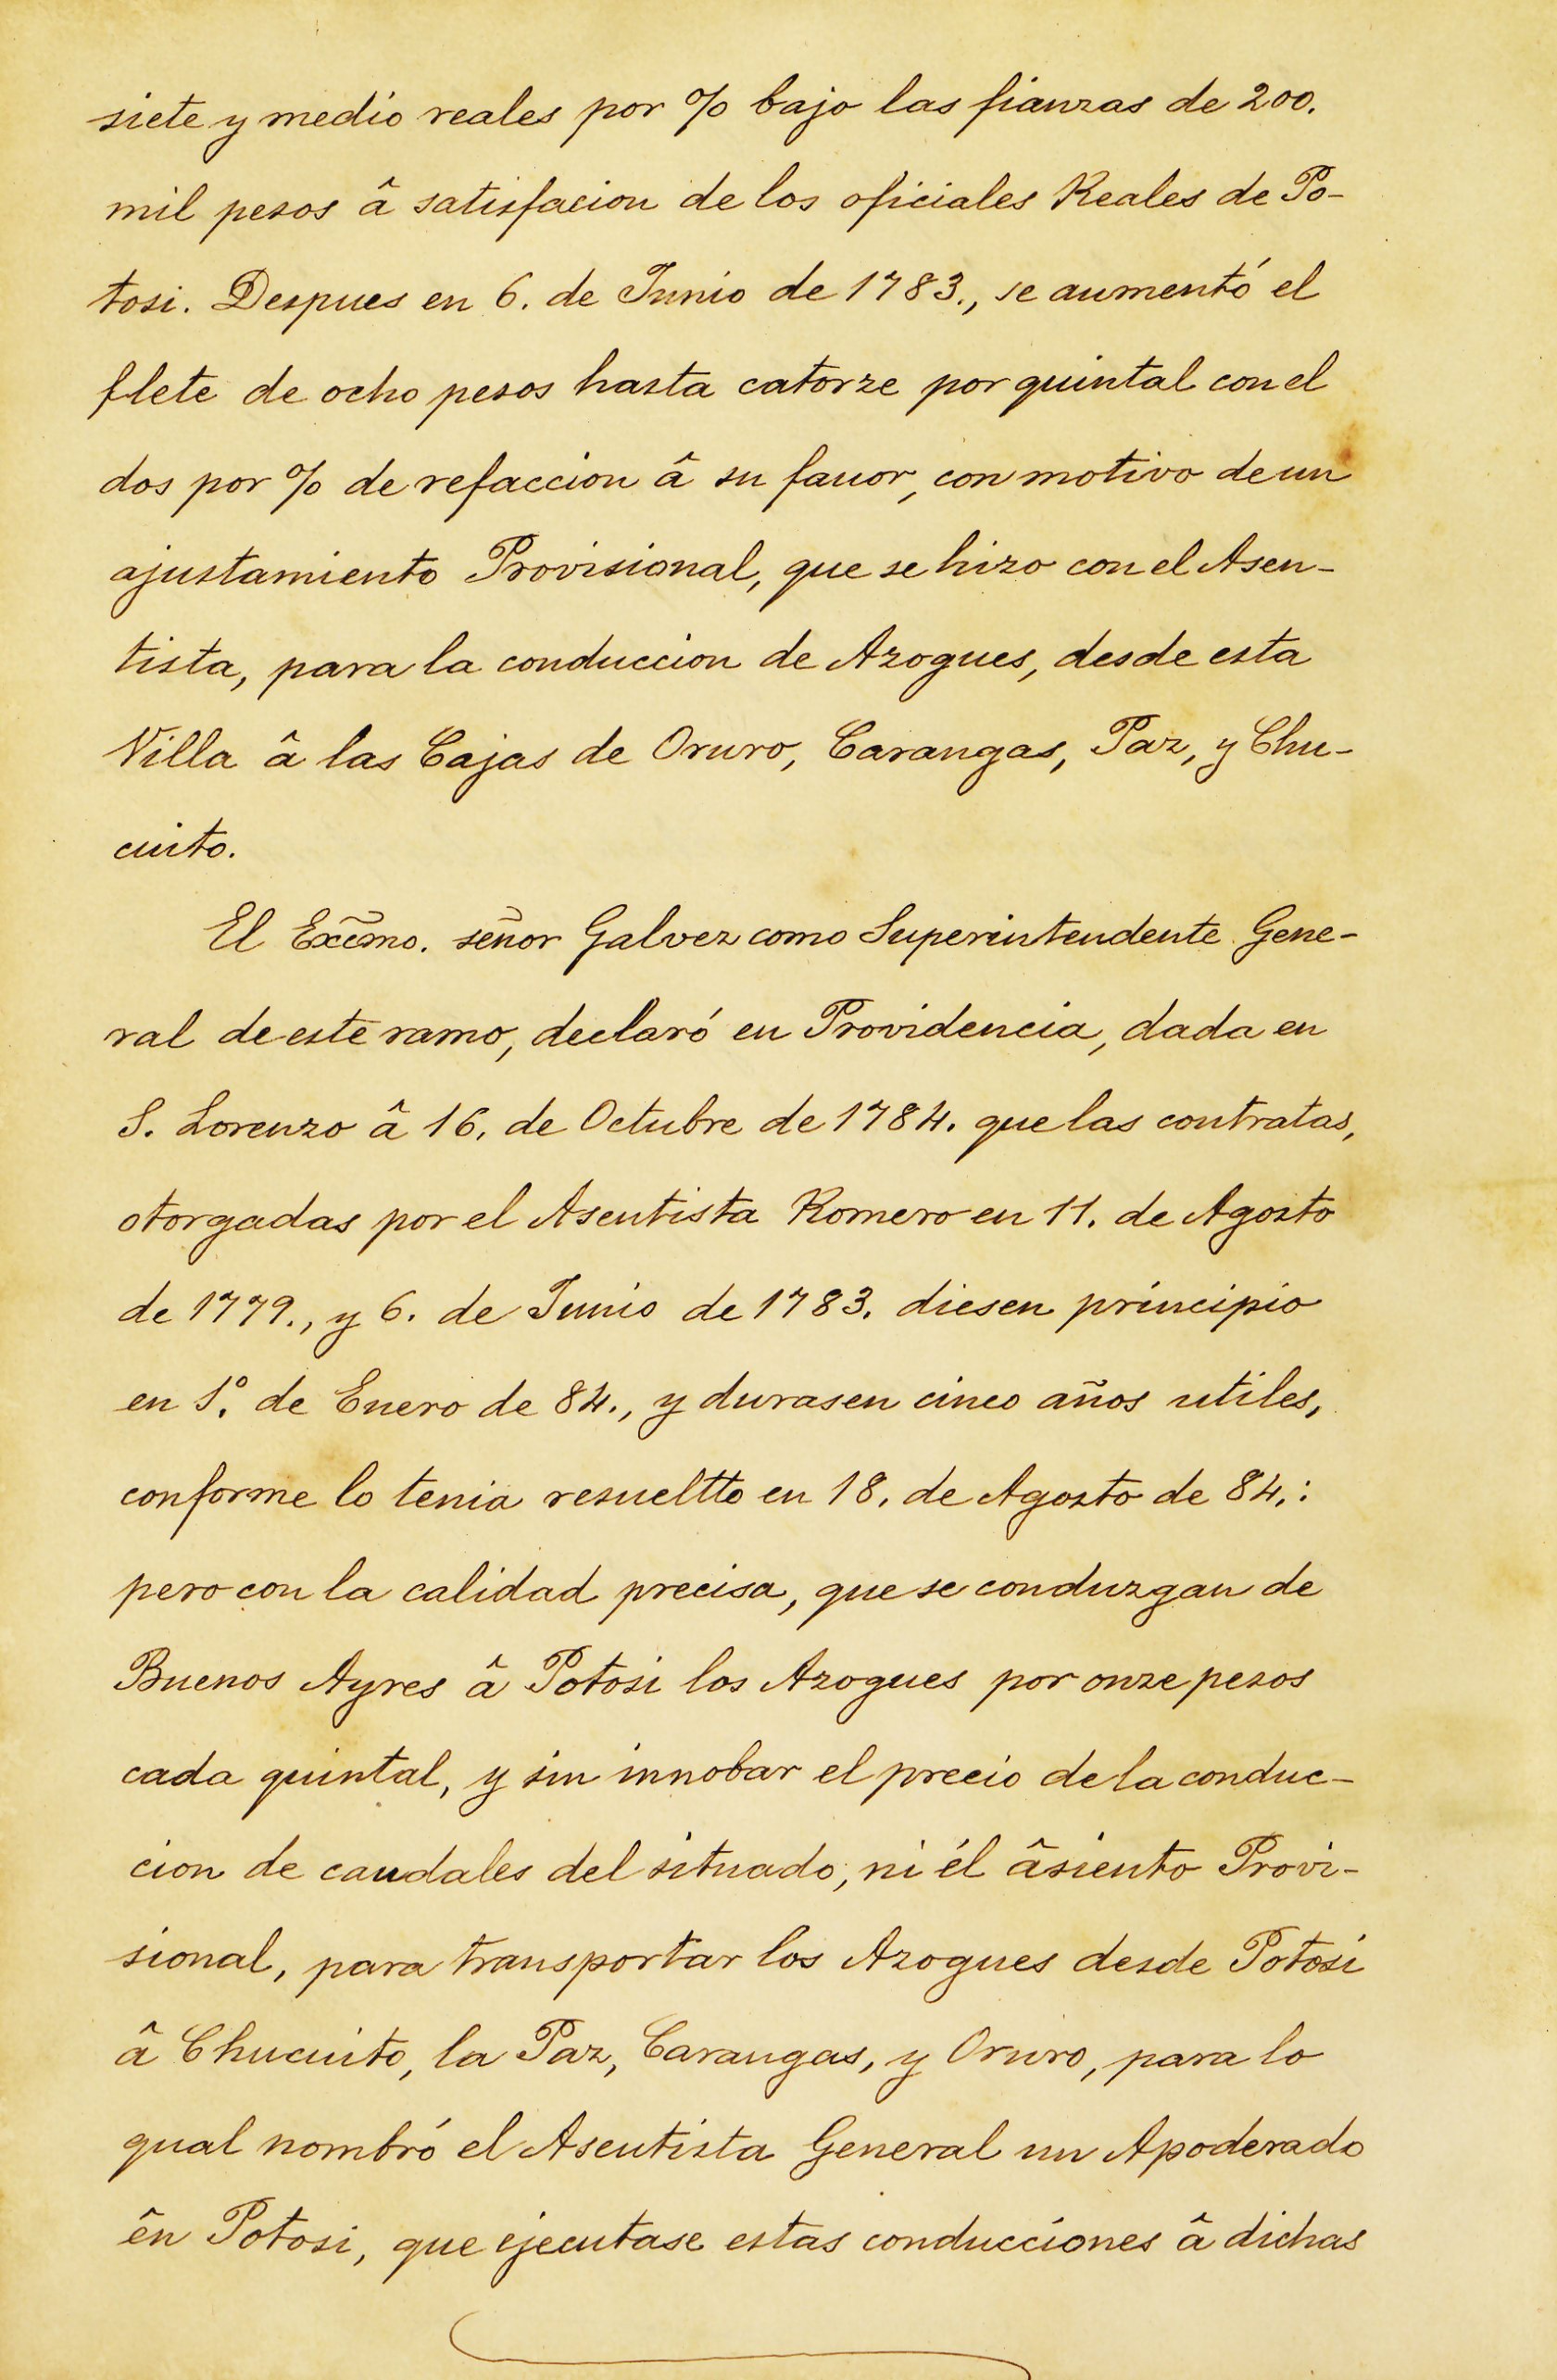 siete y medio reales por % bajo las fianzas de 200.
mil pesos â satisfacion de los oficiales Reales de Po-
tosi. Despues en 6. de Junio de 1783., se aumentó el
flete de ocho pesos hasta catorze por quintal con el
dos por % de refaccion â su fauor, con motivo de un
ajustamiento Provisional, que se hizo con el Asen-
tista, para la conduccion de Azogues, desde esta
Villa â las Cajas de Oruro, Carangas, Paz, y Chu-
cuito.
El Excm̃o. señor Galvez como Superintendente Gene-
ral de este ramo, declaró en Providencia, dada en
S. Lorenzo â 16. de Octubre de 1784. que las contratas,
otorgadas por el Asentista Romero en 11. de Agosto
de 1779., y 6. de Junio de 1783. diesen principio
en 1º. de Enero de 84., y durasen cinco años utiles,
conforme lo tenia resueltto en 18. de Agosto de 84.:
pero con la calidad precisa, que se conduzgan de
Buenos Ayres â Potosi los Azogues por onze pesos
cada quintal, y sin innobar el precio de la conduc-
cion de caudales del situado, ni él âsiento Provi-
sional, para transportar los Azogues desde Potosi
â Chucuito, la Paz, Carangas, y Oruro, para lo
qual nombró el Asentista General un Apoderado
ên Potosi, que ejecutase estas conducciones â dichas